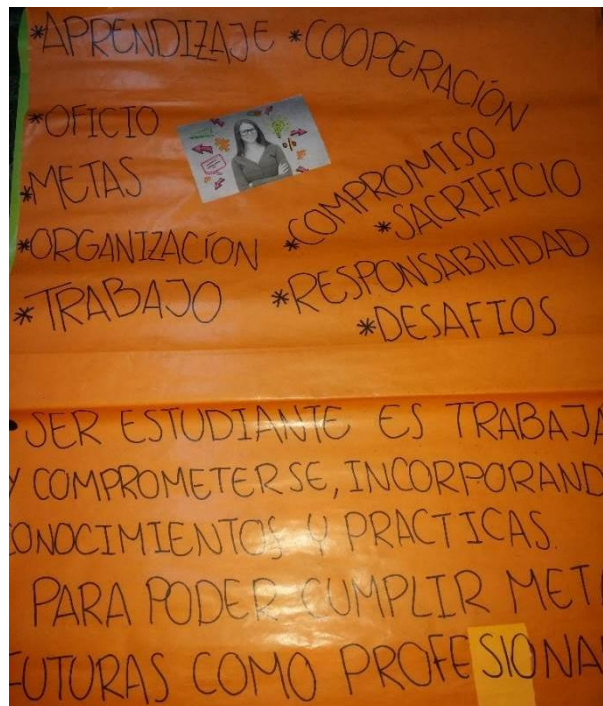 *APRENDIZAJE *COOPERACIÓN
*OFICIO
*METAS
*COMPROMISO
*SACRIFICIO
*ORGANIZACIÓN
*RESPONSABILIDAD
*TRABAJO
*DESAFIOS
•SER ESTUDIANTE ES TRABAJA
Y COMPROMETERSE, INCORPORAND
ONOCIMIENTOS Y PRACTICAS.
PARA PODER CUMPLIR META
FUTURAS COMO PROFESIONA